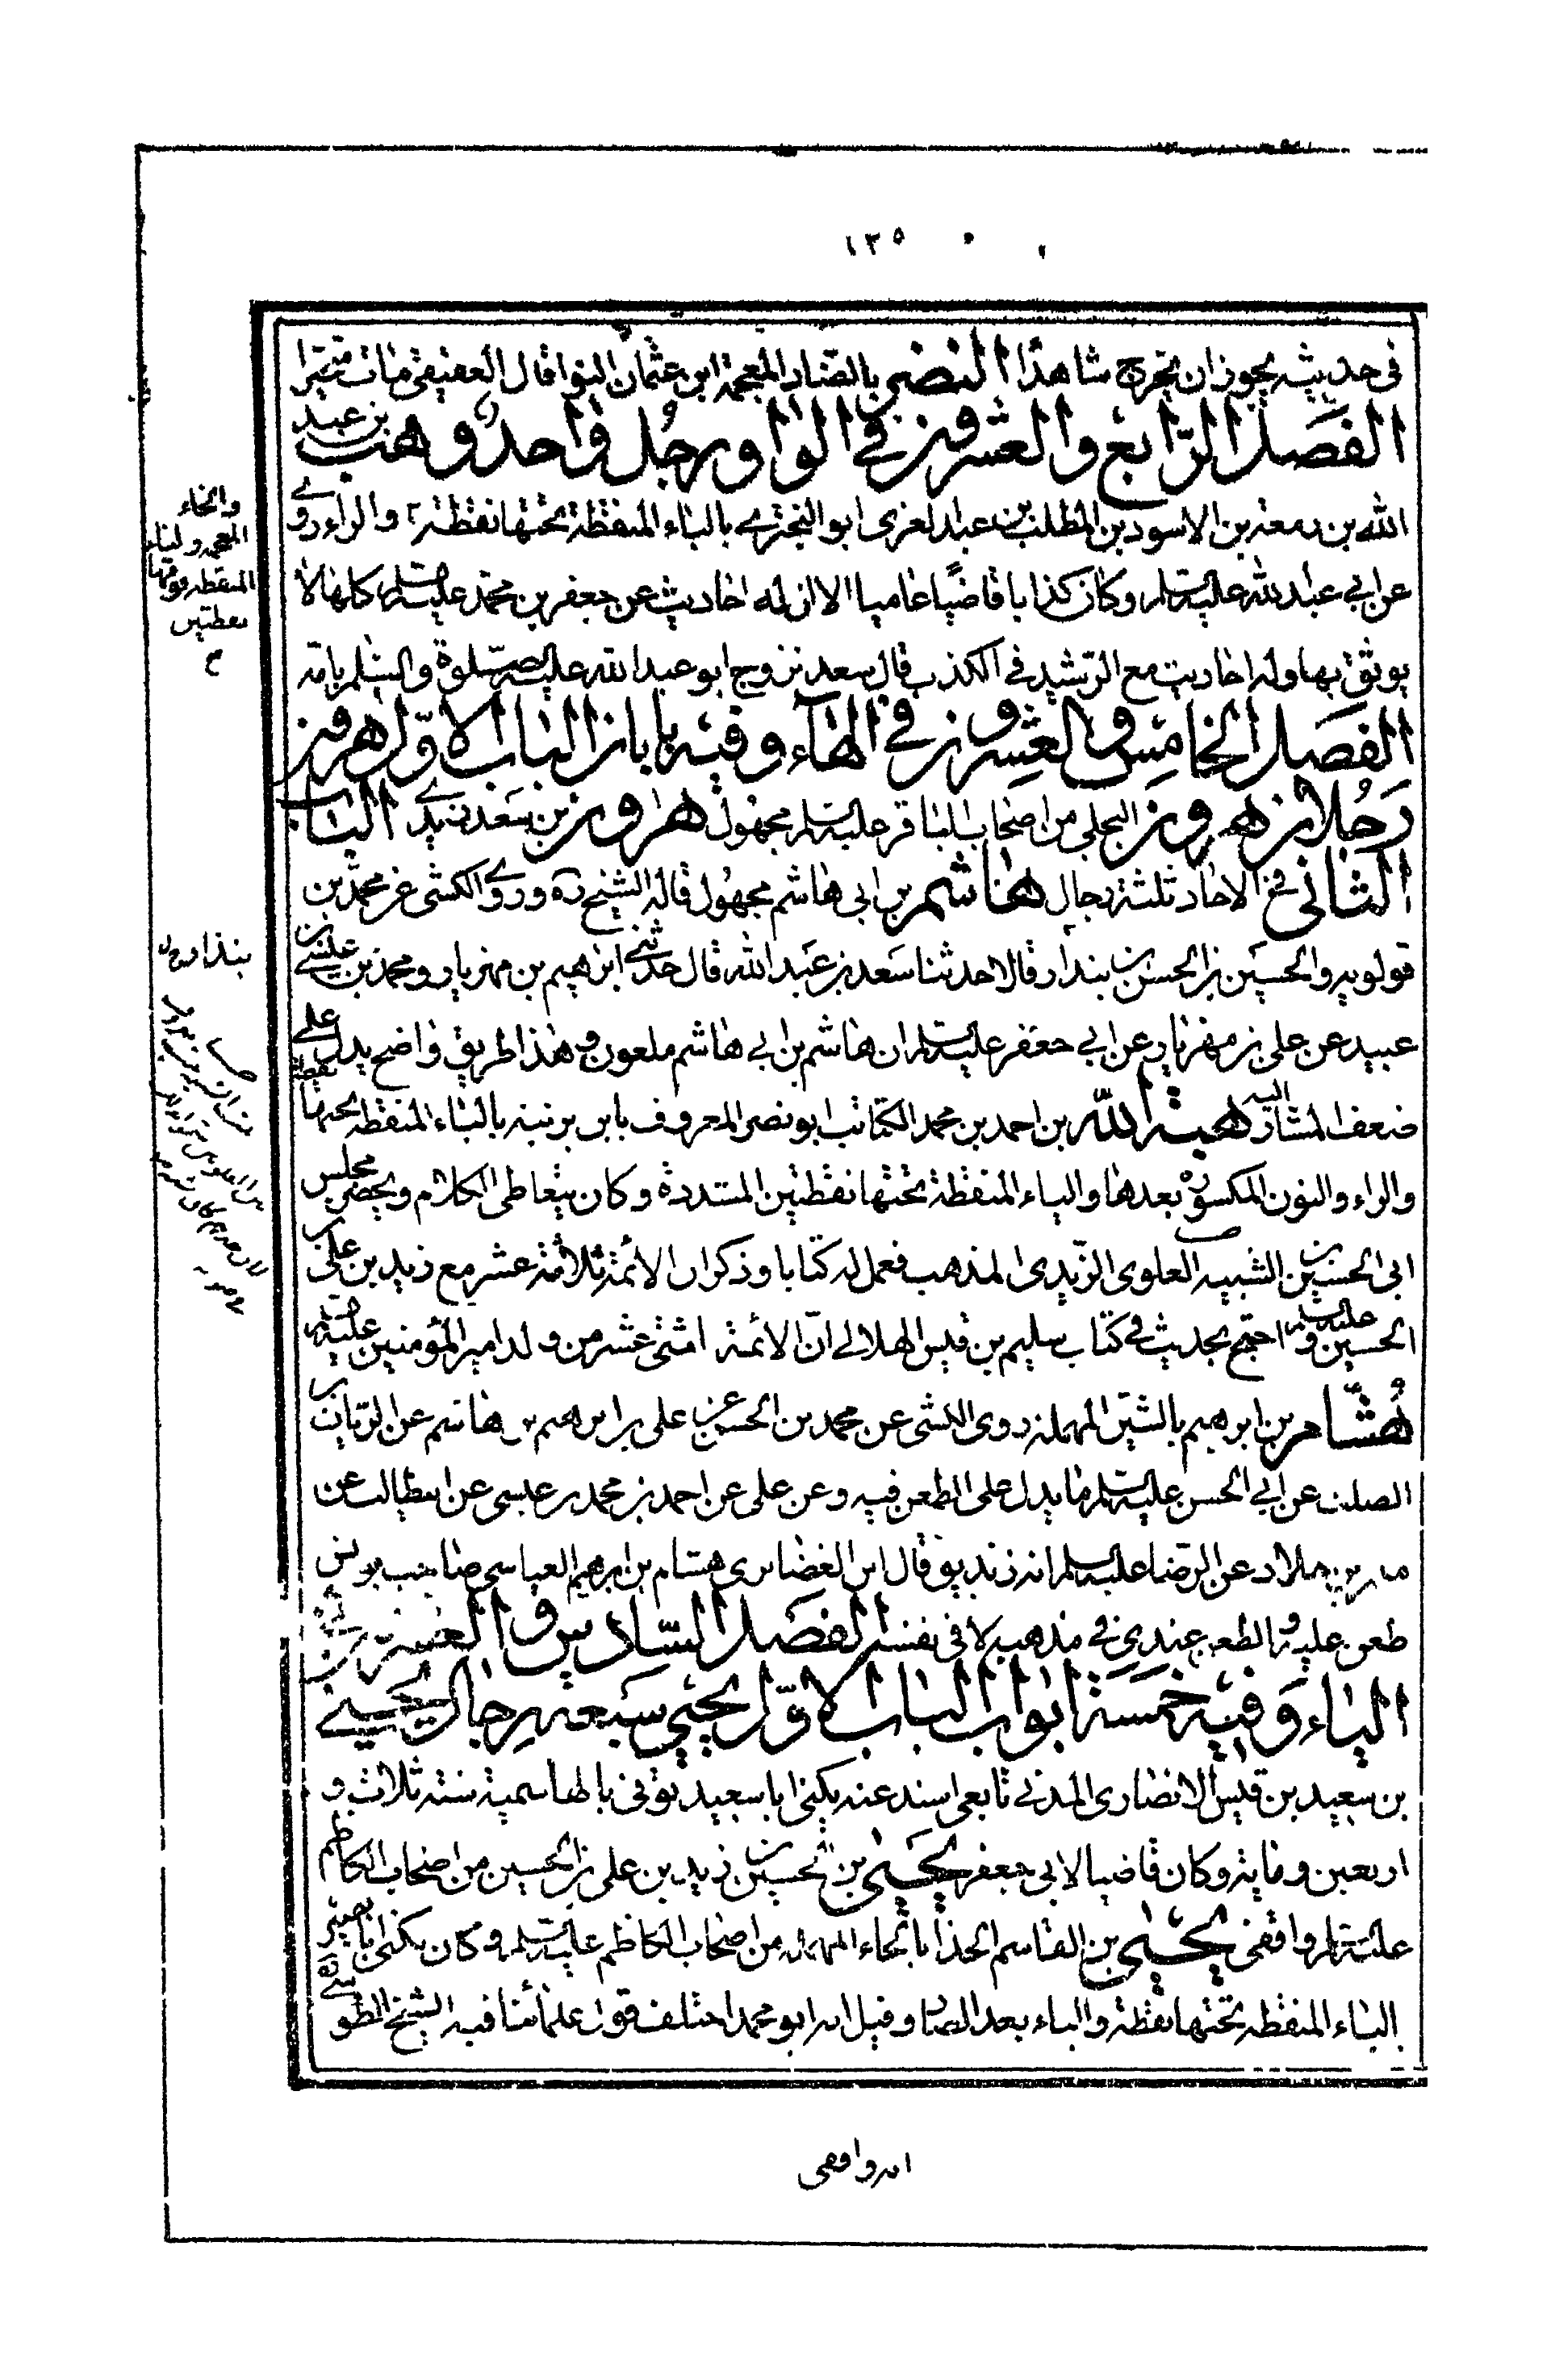 ١٣٥
في حديثه يجوز ان يخرج شاهدًا النضر بالضاد المعجمة ابن عثمان النوا قال العقيقي مات متحيرا
الفصل الرابع والعشرون في الواو رجل واحد وهب بن عبد
الله بن زمعة بن الاسود بن المطلب بن عبد العزى ابو البختري بالباء المنقطة تحتها نقطة والراء روى
عن ابي عبد الله عليه السلم وكان كذابا قاضيًا عاميا الا ان له احاديث عن جعفر بن محمد عليه السلم كلها لا
يوثق بها وله احاديث مع الرشيد في الكذب قال سعد تزوج ابو عبد الله عليه الصلوة والسلم بامه
الفصل الخامس والعشرون في الهاء وفيه بابان الباب الاول هرون
رجلان هرون البجلي من اصحاب الباقر عليه السلم مجهول هرون بن سعد زيدي الباب
الثاني في الاحاد ثلثة رجال هاشم بن ابي هاشم مجهول قاله الشيخ ره وروى الكشي عن محمد بن
قولويه والحسين بن الحسن بن بندار قالا حدثنا سعد بن عبد الله قال حدثني ابرهيم بن مهزيار ومحمد بن عيسى بن
عبيد عن علي بن مهزيار عن ابي جعفر عليه السلم ان هاشم بن ابي هاشم ملعون وهذا طريق واضح يدل على
ضعف المشار اليه هبة الله بن احمد بن محمد الكاتب ابو نصر المعروف بابن برنية بالباء المنقطة تحتها نقطة
والراء والنون المكسورة بعدها والياء المنقطة تحتها نقطتين المشددة وكان يتعاطى الكلام ويحضر مجلس
ابي الحسين بن الشبيه العلوي الزيدي المذهب فعمل له كتابا وذكر ان الائمة ثلاثة عشر مع زيد بن علي بن
الحسين عليه السلم واحتج بحديث في كتاب سليم بن قيس الهلالي انّ الائمة اثنى عشر من ولد امير المؤمنين عليه السلم
هُشّام بن ابرهيم بالشين المهملة روى الكشي عن محمد بن الحسن عن علي بن ابرهيم بن هاشم عن الريان بن
الصلت عن ابي الحسن عليه السلم ما يدل على الطعن فيه وعن علي عن احمد بن محمد بن عيسى عن ابي طالب عن
معمر بن خلاد عن الرضا عليه السلم انه زنديق قال ابن الغضائري هشام بن ابرهيم العباسي صاحب يونس
طعن عليه والطعن عندي في مذهبه لا في نفسه الفصل السادس والعشرون في
الياء وفيه خمسة ابواب الباب الاول يحيى سبعة رجال يحيى
بن سعيد بن قيس الانصاري المدني تابعي اسند عنه يكنى ابا سعيد توفي بالهاشمية سنة ثلاث و
اربعين وماية وكان قاضيا لابي جعفر يحيى بن الحسين بن زيد بن علي بن الحسين من اصحاب الكاظم
عليه السلم واقفي يحيى بن القاسم الحذا بالحاء المهملة من اصحاب الكاظم عليه السلم وكان يكنى ابا بصير
بالباء المنقطة تحتها نقطة والياء بعد الصاد وقيل انه ابو محمد اختلف قول علمائنا فيه الشيخ الطوسي ره
انه واقفي
والخاء
المعجمة والتاء
المنقطة فوقها
نقطتين